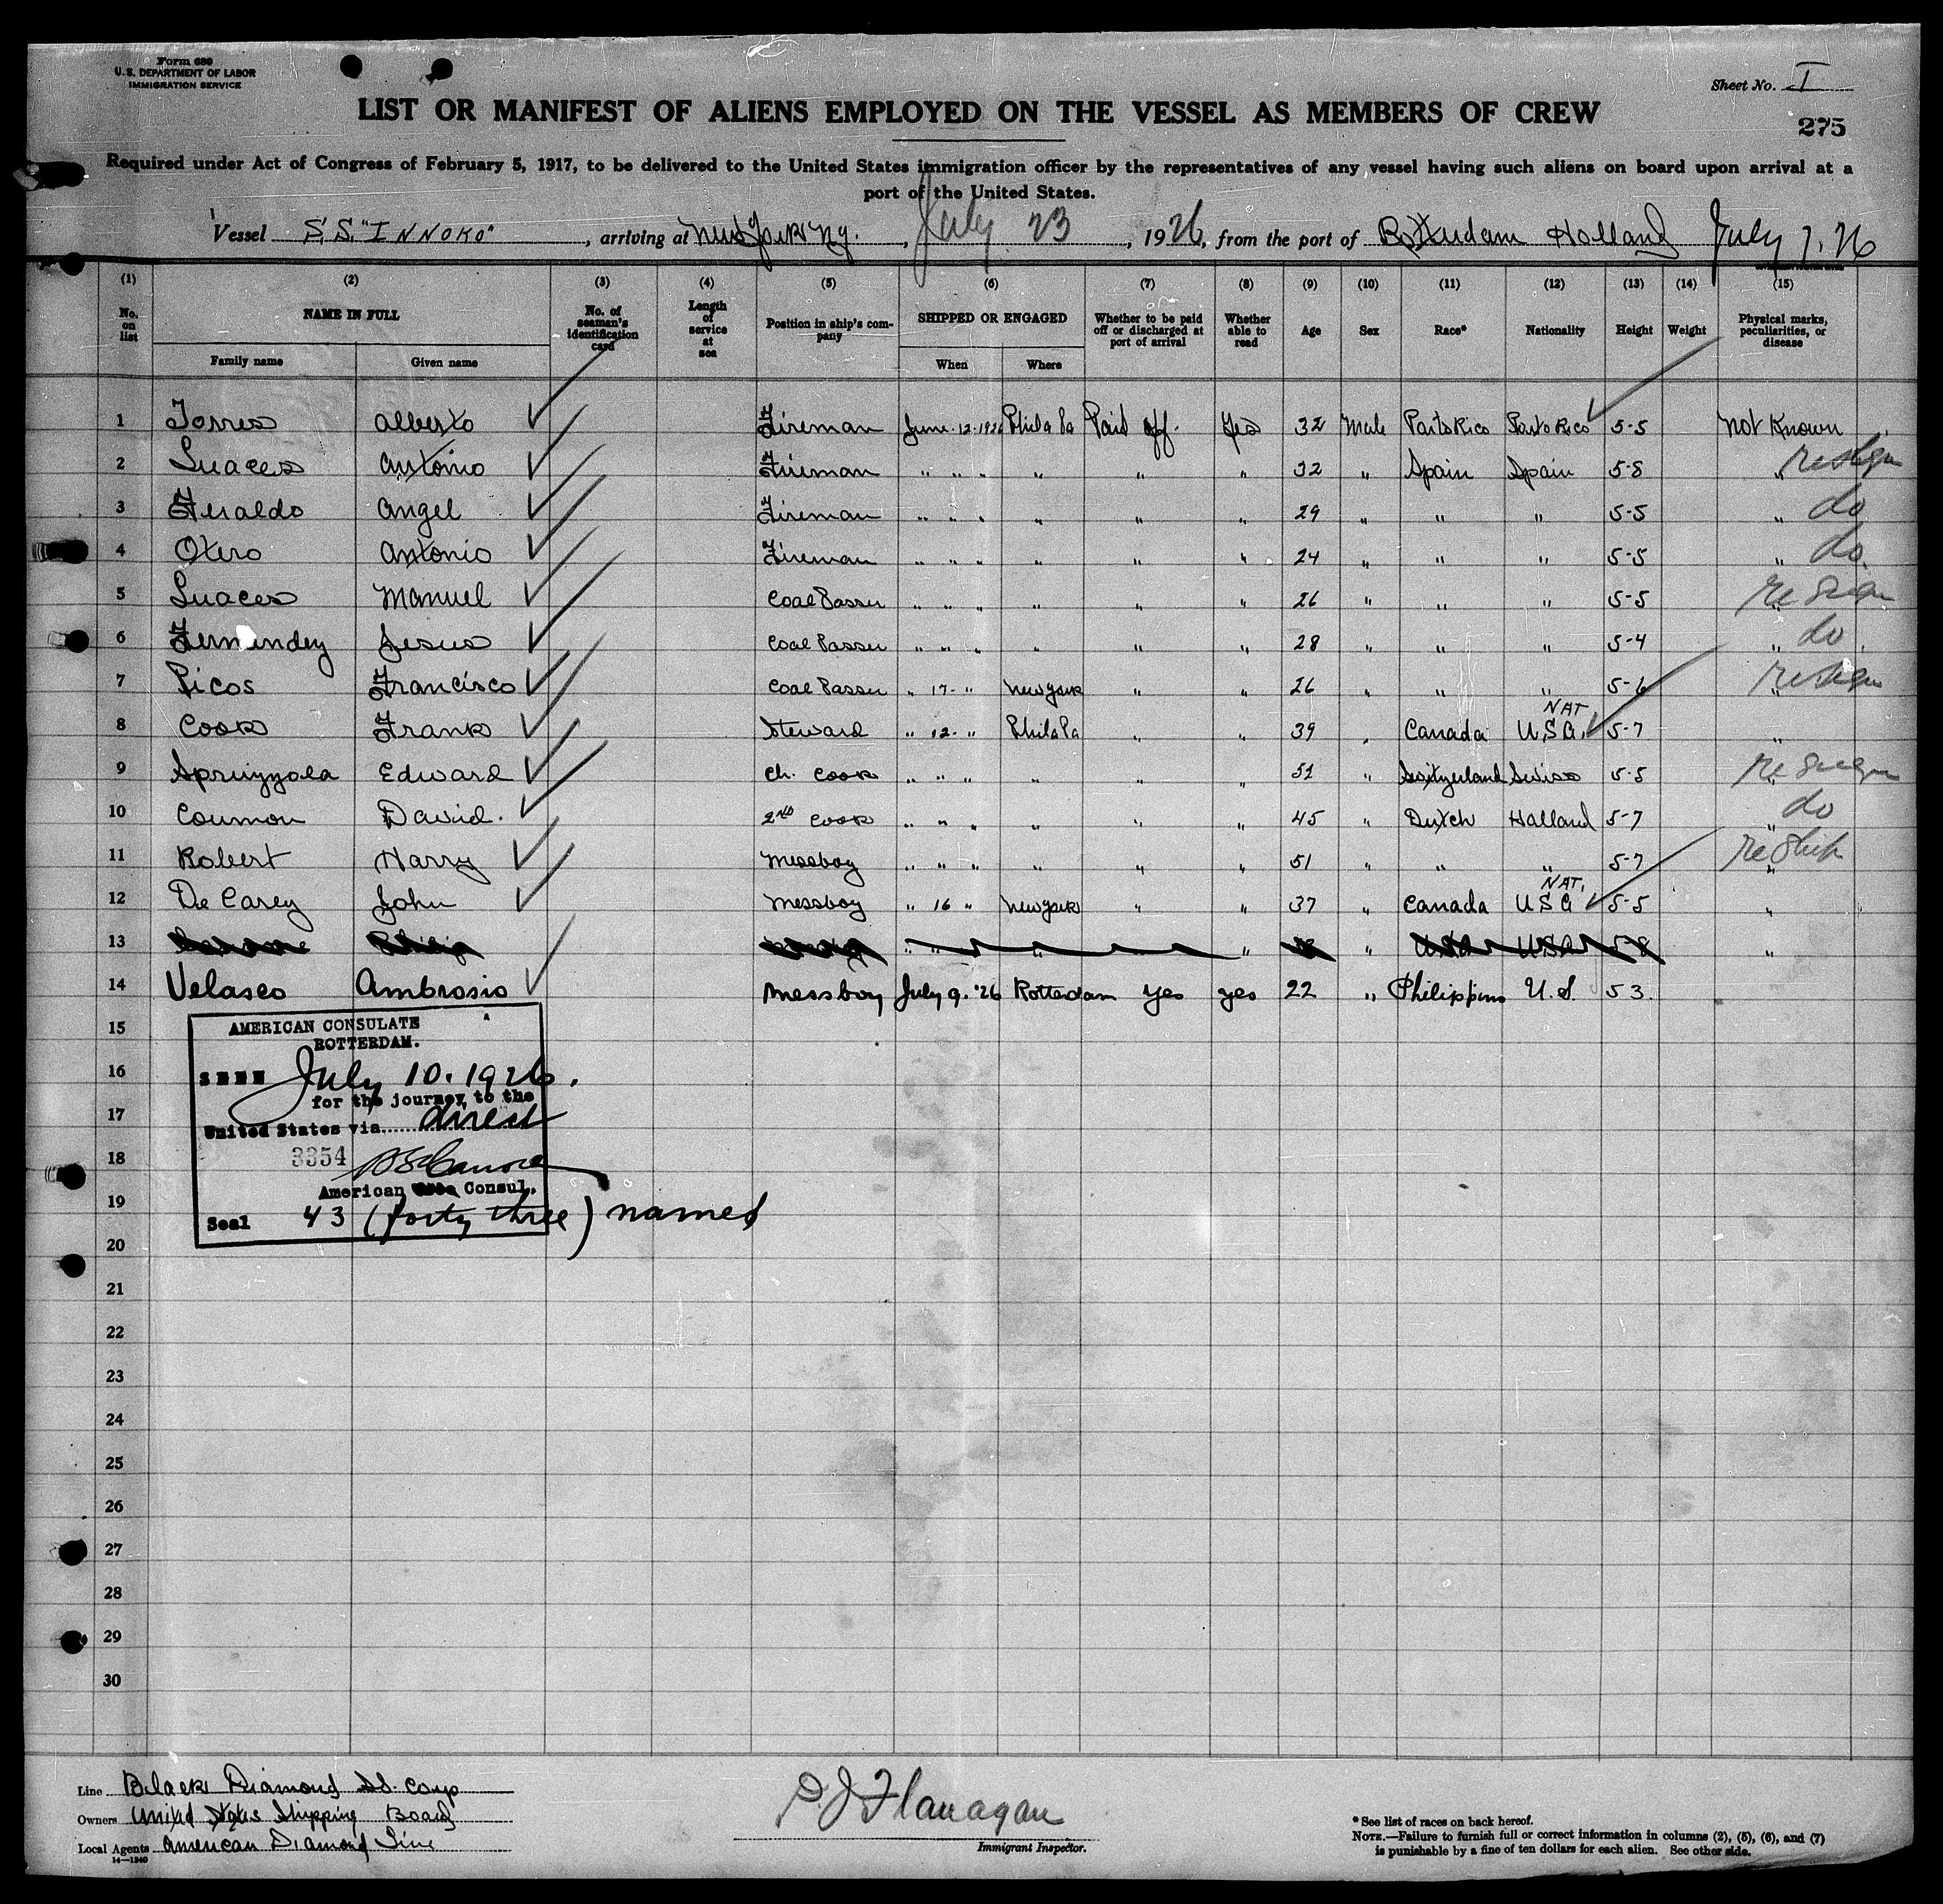 Form 680
U.S. DEPARTMENT OF LABOR
IMMIGRATION SERVICE
Sheet No. I
LIST OR MANIFEST OF ALIENS EMPLOYED ON THE VESSEL AS MEMBERS OF CREW
275
Required under Act of Congress of February 5, 1917, to be delivered to the United States immigration officer by the representatives of any vessel having such aliens on board upon arrival at a
port of the United States.
Vessel S.S. "INNOKO", arriving at New York NY., July 23, 1926, from the port of Rotterdam Holland July 7. 26
(1) (2) (3) (4) (5) (6) (7) (8) (9) (10) (11) (12) (13) (14) (15)
No. on list NAME IN FULL No. of seaman's identification card Length of service at sea Position in ship's company SHIPPED OR ENGAGED Whether to be paid off or discharged at port of arrival Whether able to read Age Sex Race* Nationality Height Weight Physical marks, peculiarities, or disease
Family name Given name When Where
1 Torres Alberto Fireman June 12-1926 Phila Pa Paid off. Yes 32 Male Porto Rico Porto Rico 5-5 Not Known
2 Suaces Antonio Fireman " " " " " " 32 " Spain Spain 5-8 "
3 Feraldo Angel Fireman " " " " " " 29 " " " 5-5 " do
4 Otero Antonio Fireman " " " " " " 24 " " " 5-5 " do
5 Suaces Manuel Coal Passer " " " " " " 26 " " " 5-5 " resign
6 Fernandez Jesus Coal Passer " " " " " " 28 " " " 5-4 " do
7 Picos Francisco Coal Passer " 17- " New York " " 26 " " " 5-6 "
8 Cook Frank Steward " 12- " Phila Pa " " 39 " Canada NAT U.S.A. 5-7 "
9 Spruzzola Edward Ch. Cook " " " " " " 51 " Switzerland Swiss 5-5 "
10 Coumou David. 2ND Cook " " " " " " 45 " Dutch Holland 5-7 " do
11 Robert Harry Messboy " " " " " " 51 " " " 5-7 " reship
12 De Carey John Messboy " 16 " New York " " 37 " Canada NAT. USA 5-5 "
13 " " "
14 Velasco Ambrosio Messboy July 9. '26 Rotterdam Yes yes 22 " Philippins U.S. 5 3.
15
AMERICAN CONSULATE
ROTTERDAM.
16
SEEN July 10. 1926.
for the journey to the
17
United States via direct
18
3354
American Consul.
19
Seal 43 (forty three) names
20
21
22
23
24
25
26
27
28
29
30
Line Black Diamond SS. Corp
Owners United States Shipping Board
Local Agents American Diamond Line
14-1240
P J Flanagan
Immigrant Inspector.
* See list of races on back hereof.
NOTE.—Failure to furnish full or correct information in columns (2), (5), (6), and (7)
is punishable by a fine of ten dollars for each alien. See other side.